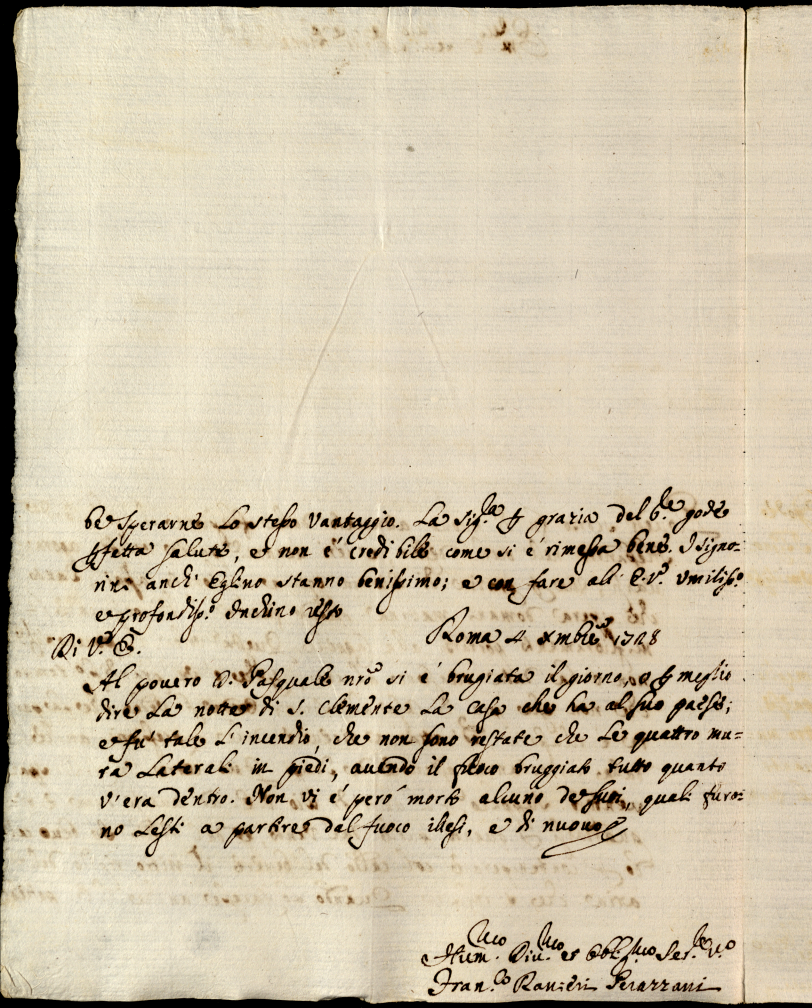 be sperarne lo stesso vantaggio. La Sig.ra p grazia del S.re gode
pfetta salute, e non é credibile come si é rimessa bene. I Signo=
rini anch' Eglino stanno benissimo; e con fare all' E.V. umiliss.o
e profondiss.o Inchino resto
Di V.E. Roma 4 Xmbre 1728
Al povero D. Pasquale nro si é brugiata il giorno, o p meglio
dire La notte di S. Clemente La Casa che ha al suo paese;
e fu' tale L'incendio, che non sono restate che Le quattro mu=
ra Laterali in piedi, avendo il fuoco bruggiato tutto quanto
v'era dentro. Non vi é peró morto alcuno de suoi, quali furo=
no Lesti a partire dal fuoco illesi, e di nuovo
Hum.mo Div.mo et Obbl.mo Ser.re V.o
Fran.co Ranieri Perazzani